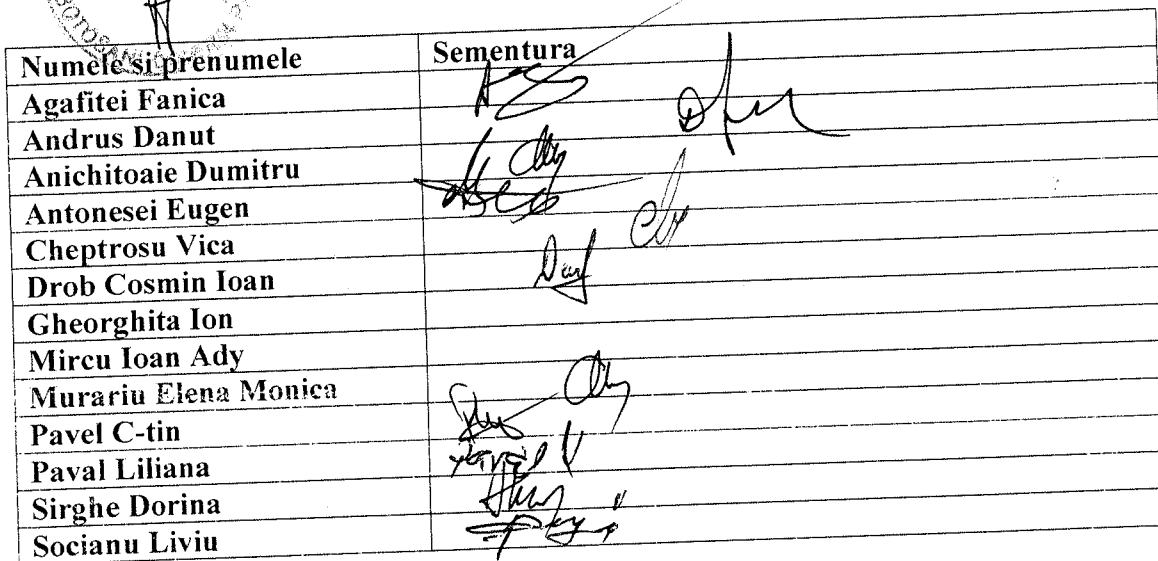 Numele si prenumele Sementura
Agafitei Fanica
Andrus Danut
Anichitoaie Dumitru
Antonesei Eugen
Cheptrosu Vica
Drob Cosmin Ioan
Gheorghita Ion
Mircu Ioan Ady
Murariu Elena Monica
Pavel C-tin
Paval Liliana
Sirghe Dorina
Socianu Liviu